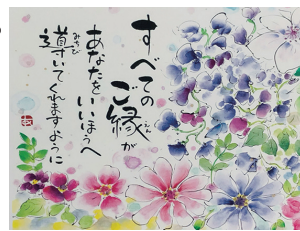 すべての
ご縁が
えん
あなたをいいほうへ
みちび
導いてくれますように